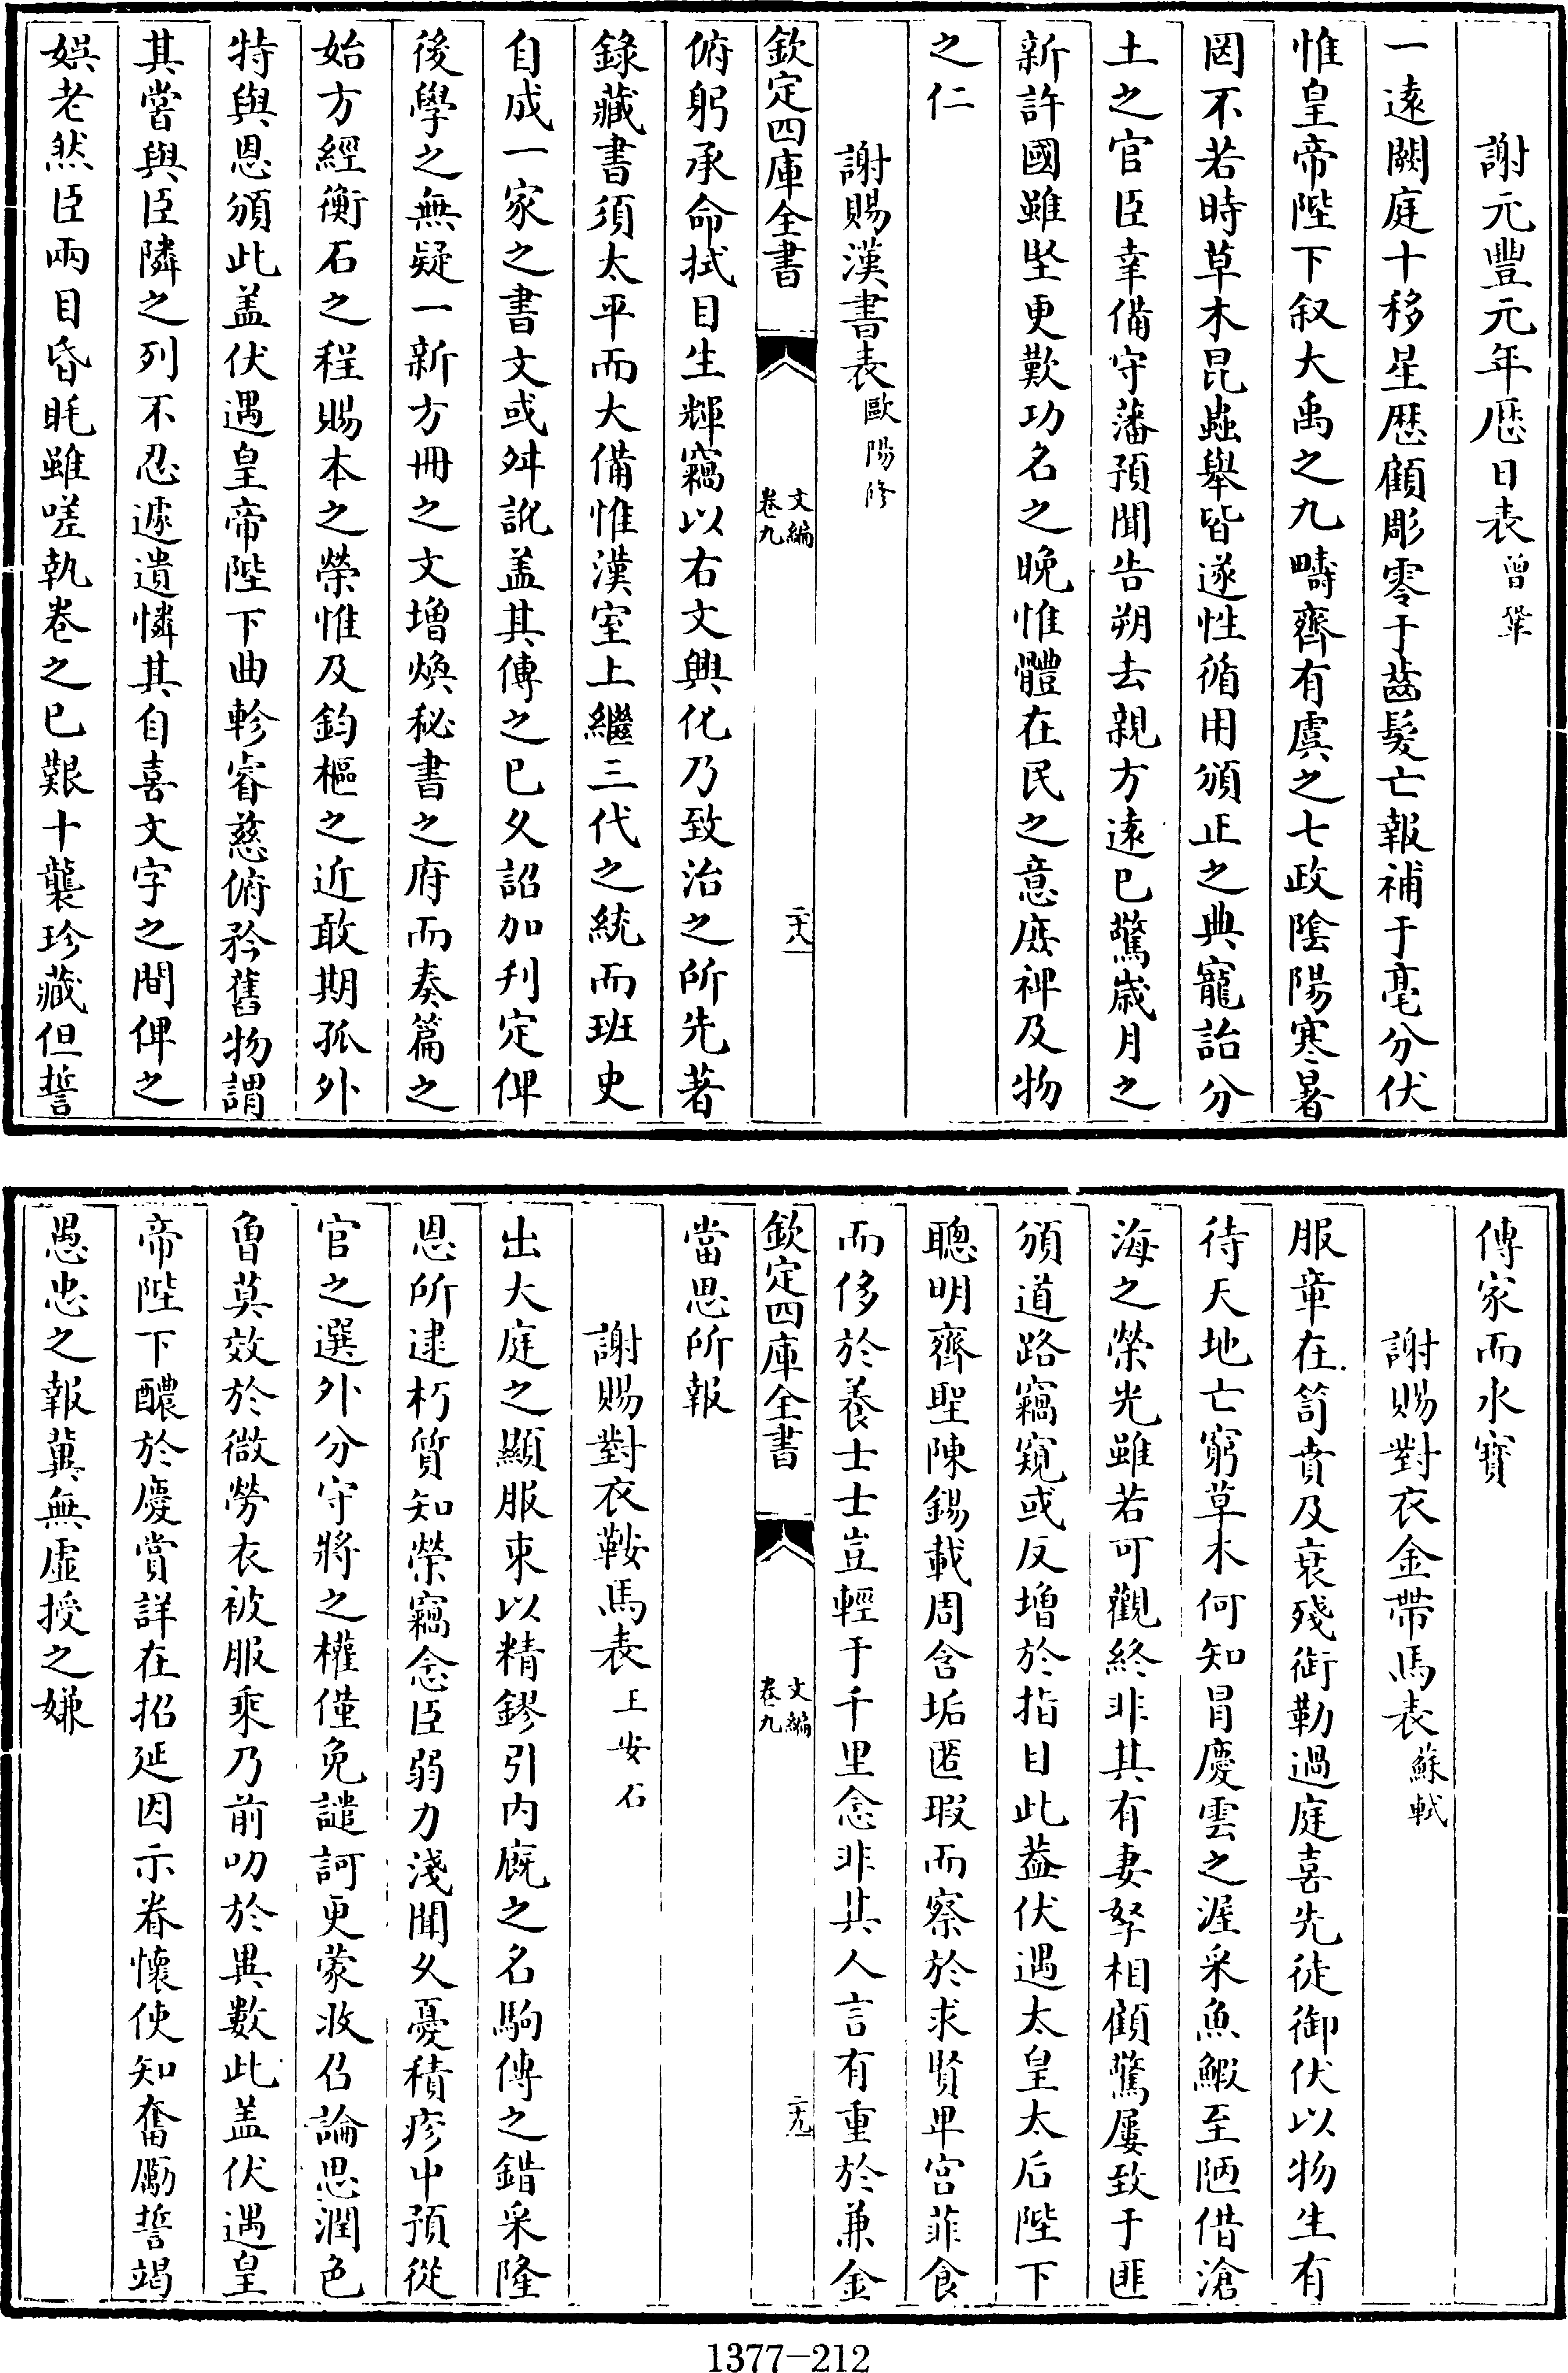 謝元豐元年厯日表曾鞏
一遠闕庭十移星厯顧彫零于齒髮亡報補于毫分伏
惟皇帝陛下叙大禹之九疇齊有虞之七政陰陽寒暑
罔不若時草木昆蟲舉皆遂性循用頒正之典寵詒分
土之官臣幸備守藩預聞告朔去親方遠已驚歲月之
新許國雖堅更歎功名之晚惟體在民之意庶裨及物
之仁
謝賜漢書表歐陽修
欽定四庫全書
文編
卷九
二十八
俯躬承命拭目生輝竊以右文興化乃致治之所先著
錄藏書須太平而大備惟漢室上繼三代之統而班史
自成一家之書文或舛訛盖其傳之已久詔加刋定俾
後學之無疑一新方冊之文增煥秘書之府而奏篇之
始方經衡石之程賜本之榮惟及鈞樞之近敢期孤外
特與恩頒此盖伏遇皇帝陛下曲軫睿慈俯矜舊物謂
其嘗與臣隣之列不忍遽遺憐其自喜文字之間俾之
娛老然臣兩目昏眊雖嗟執卷之已艱十襲珍藏但誓
傳家而永寳
謝賜對衣金帶馬表蘇軾
服章在笥賁及衰殘銜勒過庭喜先徒御伏以物生有
待天地亡窮草木何知冐慶雲之渥采魚鰕至陋借滄
海之榮光雖若可觀終非其有妻孥相顧驚屢致于匪
頒道路竊窺或反增於指目此葢伏遇太皇太后陛下
聰明齊聖陳錫載周含垢匿瑕而察於求賢卑宫菲食
而侈於養士士豈輕于千里念非其人言有重於兼金
欽定四庫全書
文編
卷九
二十九
當思所報
謝賜對衣鞍馬表王安石
出大庭之顯服束以精鏐引内廐之名駒傅之錯采隆
恩所逮朽質知榮竊念臣弱力淺聞久憂積疹中預從
官之選外分守將之權僅免譴訶更蒙收召論思潤色
曾莫效於微勞衣被服乘乃前叨於異數此盖伏遇皇
帝陛下醲於慶賞詳在招延因示眷懷使知奮勵誓竭
愚忠之報冀無虛授之嫌
1377-212